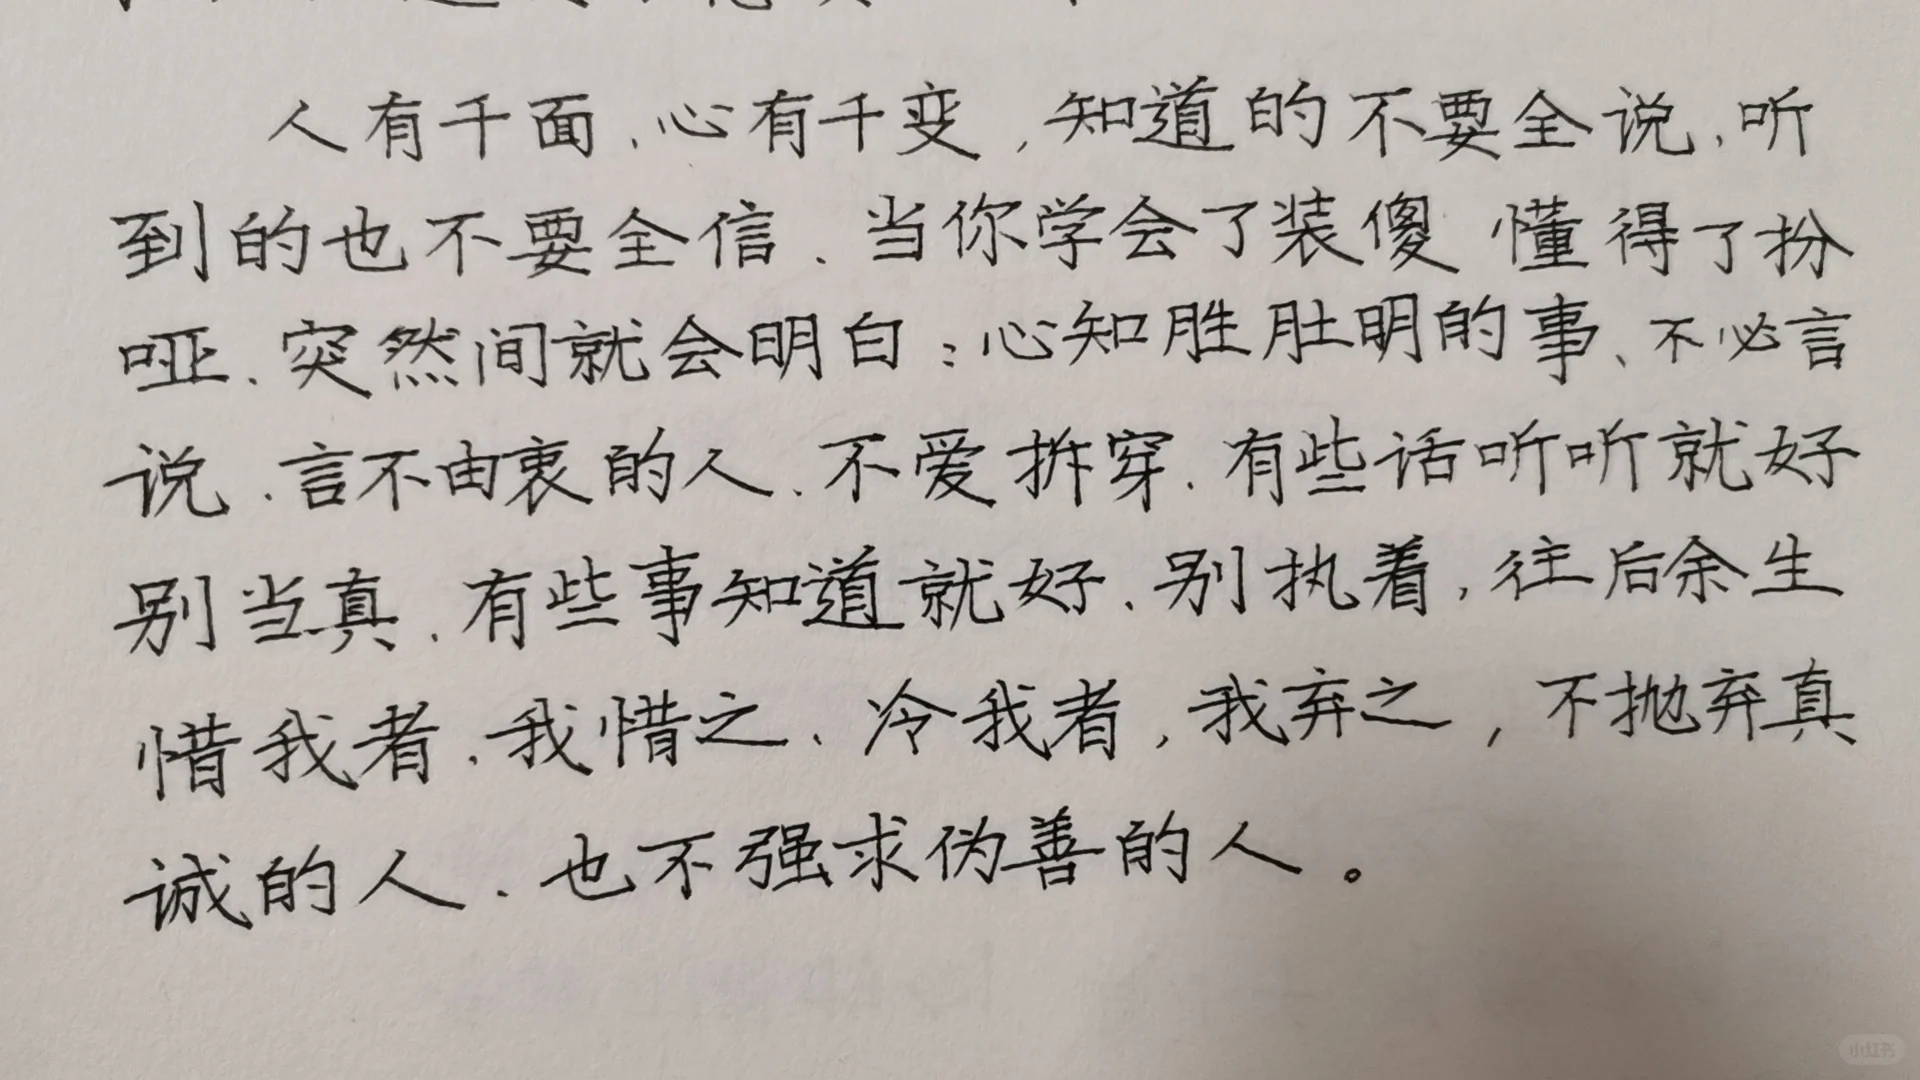 人有千面、心有千变,知道的不要全说、听
到的也不要全信、当你学会了装傻 懂得了扮
哑、突然间就会明白:心知胜肚明的事、不必言
说、言不由衷的人、不爱拆穿、有些话听听就好
别当真、有些事知道就好、别执着,往后余生
惜我者、我惜之、冷我者,我弃之,不抛弃真
诚的人、也不强求伪善的人。
小红书